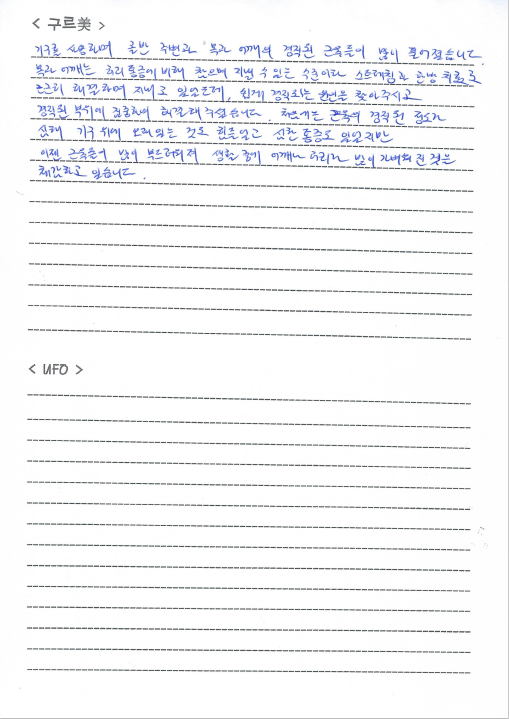 < 구르美 >
기구를 사용하며 골반 주변과 목과 어깨의 경직된 근육들이 많이 풀어졌습니다
목과 어깨는 허리 통증에 비해 참으며 지낼 수 있는 수준이라 스트레칭과 한방 치료로
간간히 해결하며 지내고 있었는데, 쉽게 경직되는 원인을 찾아주시고
경직된 부위에 집중하여 해결해주셨습니다. 처음에는 근육의 경직된 정도가
심해 기구 위에 오래있는 것도 힘들었고 심한 통증도 있었지만
이제 근육들이 많이 부드러워져 생활 중에 어깨나 허리가 많이 가벼워진 것을
체감하고 있습니다.
< UFO >